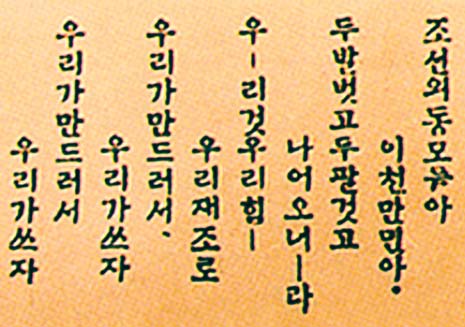 조선의동모들아
이천만민아•
두발벗고두팔것고
나어오너ー라
우ー리것우리힘ー
우리재조로
우리가만드러서、
우리가쓰자
우리가만드러서
우리가쓰자